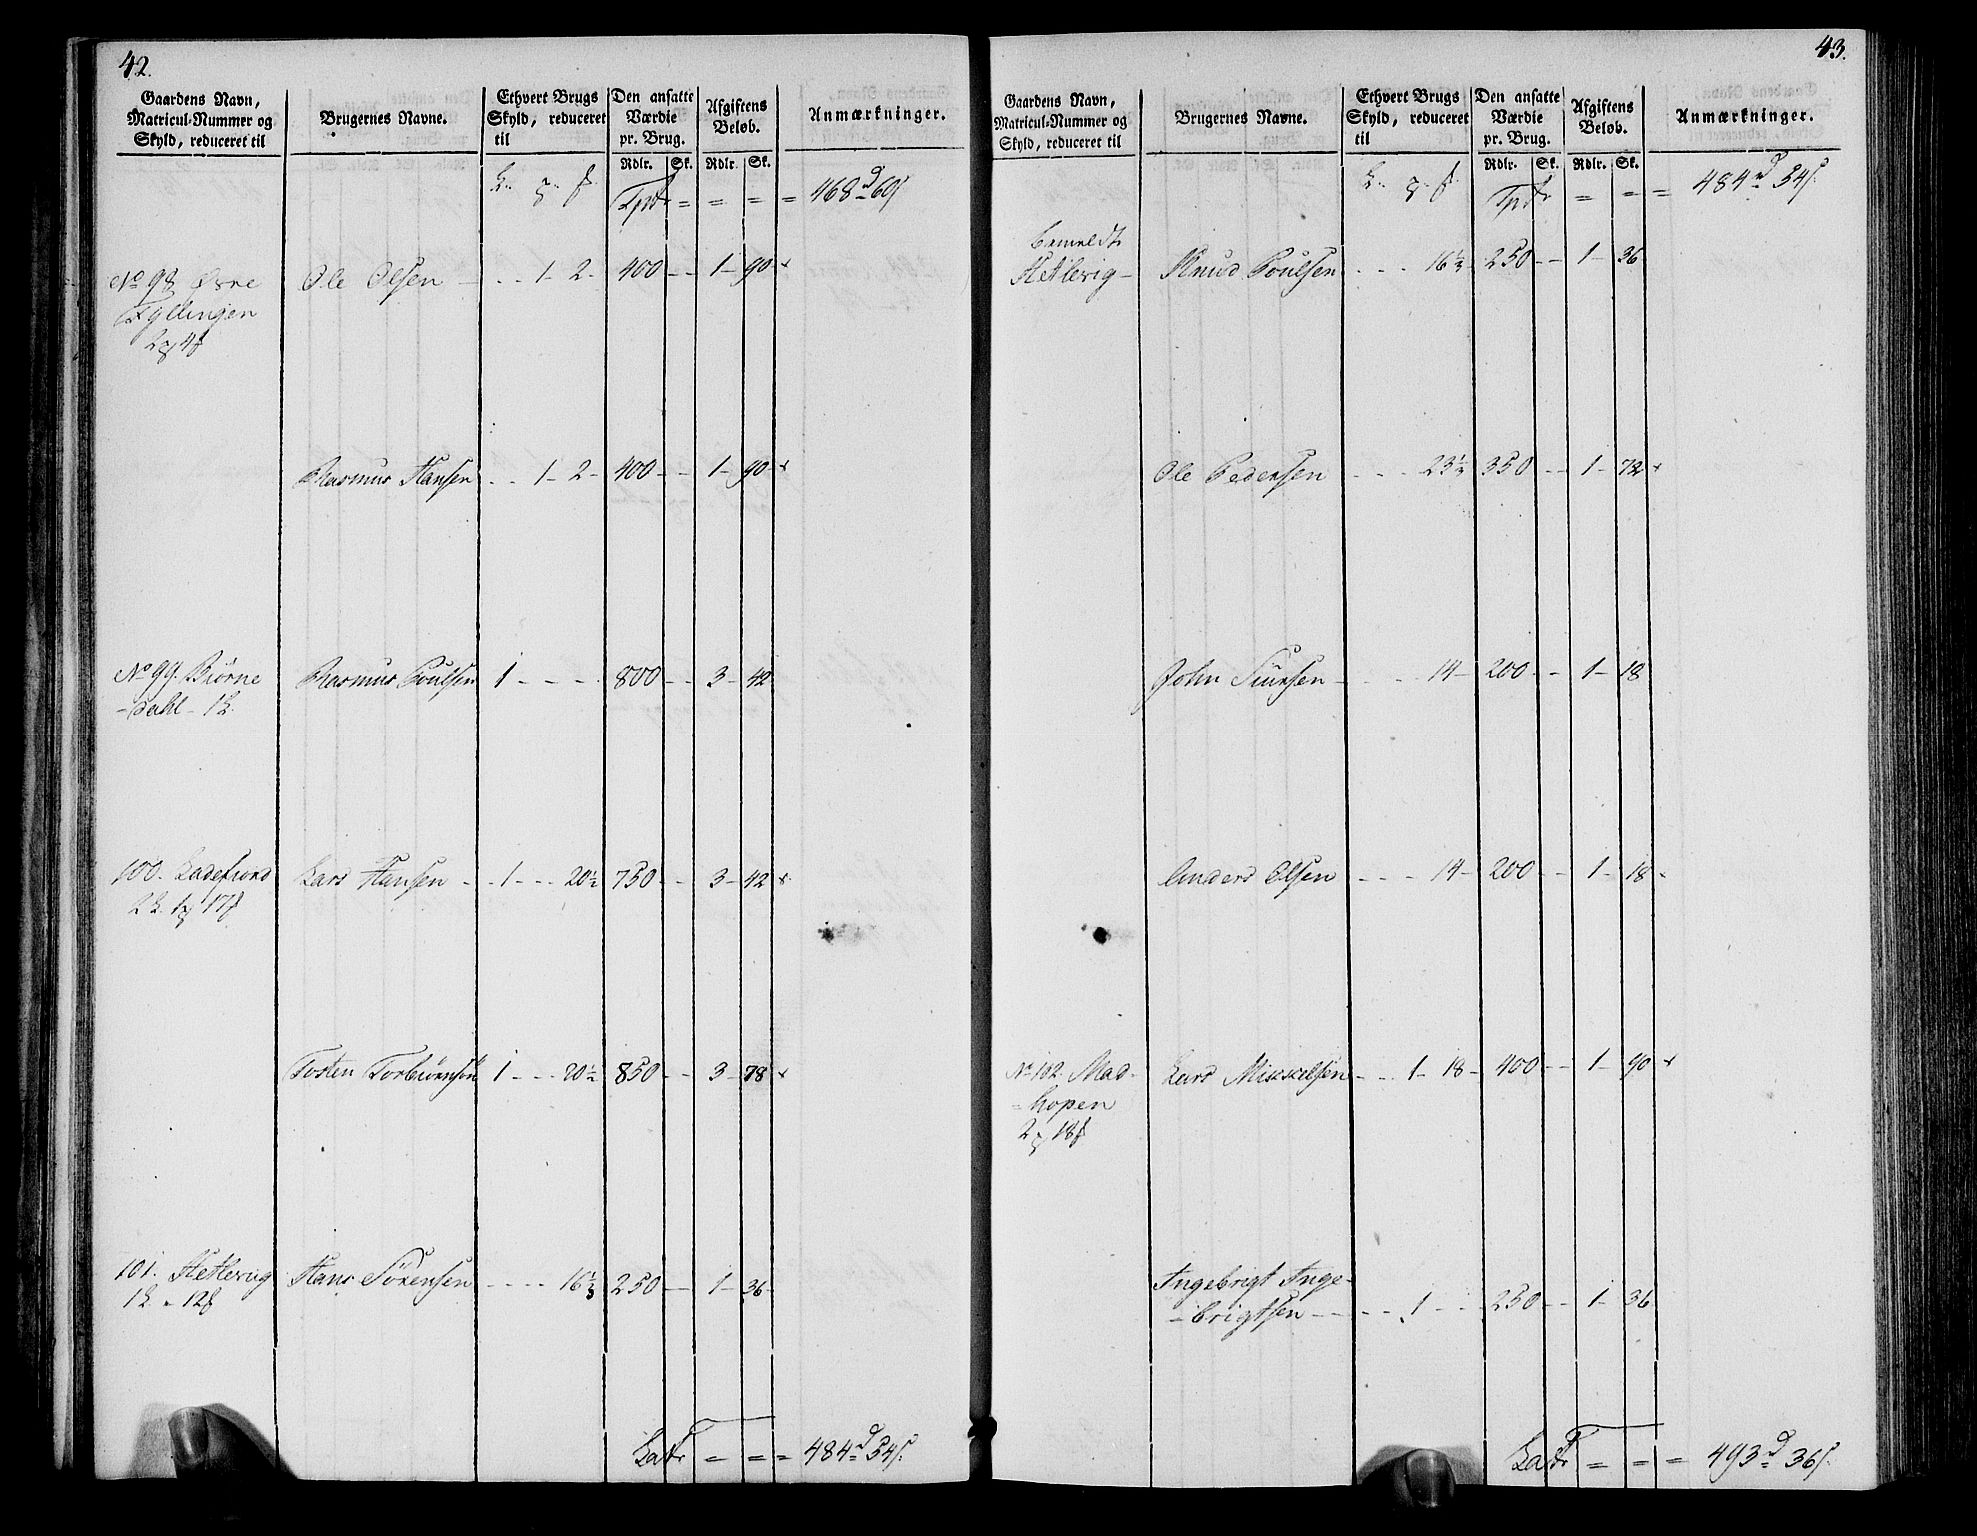 42.
Gaardens Navn, Matricul-Nummer og Skyld, reduceret til
Brugernes Navne.
Ethvert Brugs Skyld, reduceret til
Den ansatte Værdie pr. Brug.
Afgiftens Beløb.
Anmærkninger.
Rdlr. Sk. Rdlr. Sk.
= = = = 468 d 60 s
No 98 Øvre Ole Olsen - . . 1 - 2 - 400 - - 1 - 90 - x
Gyllingen
2 4
Rasmus Hansen . . 1 - 2 - 400 - - 1 - 90 - x
No 99. Biørne Rasmus Poulsen 1 - - - - 800 - - 3 - 42
- Dahl - 1
100. Ladefiord Lars Hansen - 1 - - - 20½ 750 - - 3 - 42 x
2 1 17
Tosten Torbiørnsen 1 - - - 20½ 850 - - 3 - 78 x
101. Hetlevig Hans Sørensen - - - - 16⅓ 250 - - 1 - 36
1 " 12
Lat = = = 484 d 54 s.
43.
Gaardens Navn, Matricul-Nummer og Skyld, reduceret til
Brugernes Navne.
Ethvert Brugs Skyld, reduceret til
Den ansatte Værdie pr. Brug.
Afgiftens Beløb.
Anmærkninger.
Rdlr. Sk. Rdlr. Sk.
= = = 484 d 54 s.
bemeldte
Hetlevig - Knud Poulsen - - - 16⅓ 250 - - 1 - 36
Ole Pedersen - - - 23⅓ 350 - - 1 - 72 x
John Siursen - - - 14 - 200 - - 1 - 18
Anders Olsen - - - 14 - 200 - - 1 - 18
No 102. Mad- Lars Mikkelsen - - - 1 - 18 - 400 - - 1 - 90 x
= hopen
2 18
Ingebrigt Inge-
- brigtsen - - - - 1 - - 250 - - 1 - 36
Lat = = = 493 d 36 s.